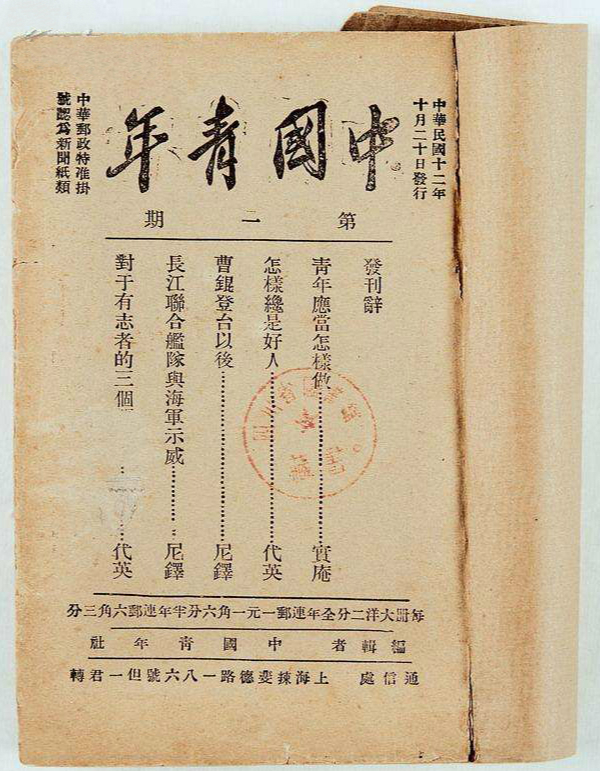 中華民國十二年
十月二十日發行
中國青年
中華郵政特准掛
號認為新聞紙類
第一期
發刊辭
青年應當怎樣做……………………實庵
怎樣纔是好人……………………代英
曹錕登台以後……………………尼鐸
長江聯合艦隊與海軍示威…………尼鐸
對于有志者的三個……代英
每冊大洋二分全年連郵一元一角六分半年連郵六角三分
編輯者 中國青年社
通信處 上海辣斐德路一八六號但一君轉